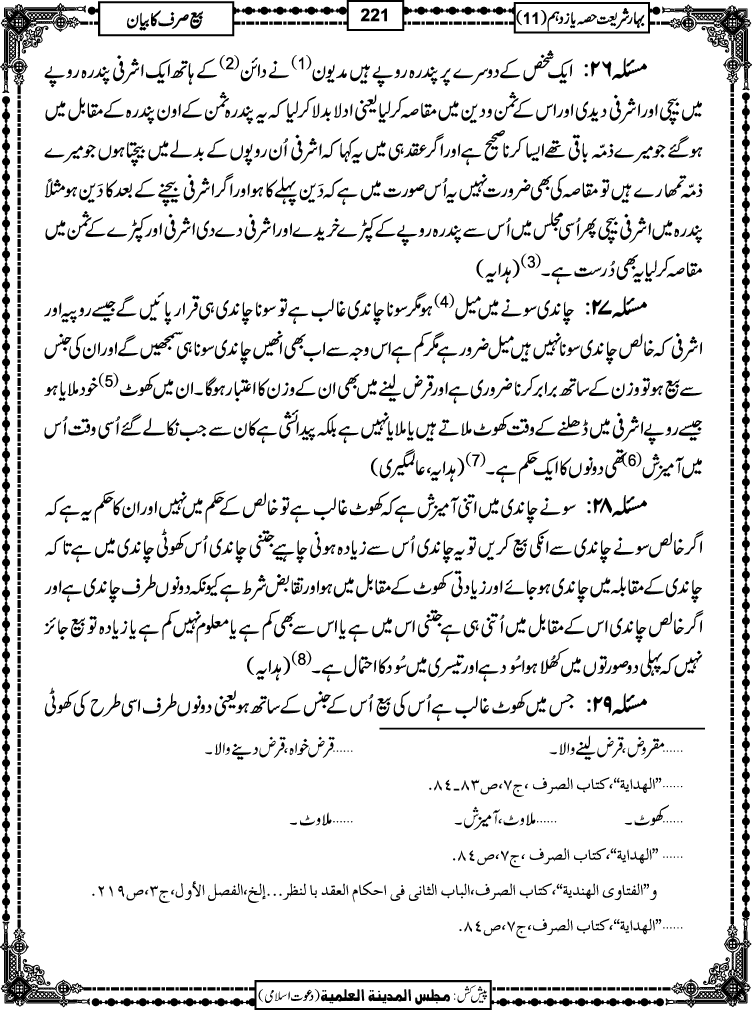 بہار شریعت حصہ یازدہم (11)
221
بیع صرف کا بیان
مسئلہ ۲۶: ایک شخص کے دوسرے پر پندرہ روپے ہیں مدیون(1) نے دائن(2) کے ہاتھ ایک اشرفی پندرہ روپے
میں بیچی اور اشرفی دیدی اور اس کے ثمن و دین میں مقاصہ کرلیا یعنی ادلا بدلا کرلیا کہ یہ پندرہ ثمن کے اون پندرہ کے مقابل میں
ہوگئے جو میرے ذمّہ باقی تھے ایسا کرنا صحیح ہے اور اگر عقد ہی میں یہ کہا کہ اشرفی اُن روپوں کے بدلے میں بیچتا ہوں جو میرے
ذمّہ تمھارے ہیں تو مقاصہ کی بھی ضرورت نہیں یہ اُس صورت میں ہے کہ دَین پہلے کا ہو اور اگر اشرفی بیچنے کے بعد کا دَین ہو مثلاً
پندرہ میں اشرفی بیچی پھر اُسی مجلس میں اُس سے پندرہ روپے کے کپڑے خریدے اور اشرفی دے دی اشرفی اور کپڑے کے ثمن میں
مقاصہ کرلیا یہ بھی دُرست ہے۔(3) (ہدایہ)
مسئلہ ۲۷: چاندی سونے میں میل(4) ہو مگر سونا چاندی غالب ہے تو سونا چاندی ہی قرار پائیں گے جیسے روپیہ اور
اشرفی کہ خالص چاندی سونا نہیں ہیں میل ضرور ہے مگر کم ہے اس وجہ سے اب بھی انھیں چاندی سونا ہی سمجھیں گے اور ان کی جنس
سے بیع ہو تو وزن کے ساتھ برابر کرنا ضروری ہے اور قرض لینے میں بھی ان کے وزن کا اعتبار ہوگا۔ ان میں کھوٹ(5) خود ملایا ہو
جیسے روپے اشرفی میں ڈھلنے کے وقت کھوٹ ملاتے ہیں یا ملایا نہیں ہے بلکہ پیدائشی ہے کان سے جب نکالے گئے اُسی وقت اُس
میں آمیزش(6) تھی دونوں کا ایک حکم ہے۔(7) (ہدایہ، عالمگیری)
مسئلہ ۲۸: سونے چاندی میں اتنی آمیزش ہے کہ کھوٹ غالب ہے تو خالص کے حکم میں نہیں اور ان کا حکم یہ ہے کہ
اگر خالص سونے چاندی سے انکی بیع کریں تو یہ چاندی اُس سے زیادہ ہونی چاہیے جتنی چاندی اُس کھوٹی چاندی میں ہے تاکہ
چاندی کے مقابلہ میں چاندی ہو جائے اور زیادتی کھوٹ کے مقابل میں ہو اور تقابض شرط ہے کیونکہ دونوں طرف چاندی ہے اور
اگر خالص چاندی اس کے مقابل میں اُتنی ہی ہے جتنی اس میں ہے یا اس سے بھی کم ہے یا معلوم نہیں کم ہے یا زیادہ تو بیع جائز
نہیں کہ پہلی دو صورتوں میں کھُلا ہوا سُود ہے اور تیسری میں سُود کا احتمال ہے۔(8) (ہدایہ)
مسئلہ ۲۹: جس میں کھوٹ غالب ہے اُس کی بیع اُس کے جنس کے ساتھ ہو یعنی دونوں طرف اسی طرح کی کھوٹی
......مقروض، قرض لینے والا۔ ......قرض خواہ، قرض دینے والا۔
......"الھدایة"، کتاب الصرف، ج۷، ص۸۳۔۸۴.
......کھوٹ۔ ......ملاوٹ، آمیزش۔ ......ملاوٹ۔
......"الھدایة"، کتاب الصرف، ج۷، ص۸۴.
و"الفتاوی الھندیة"، کتاب الصرف، الباب الثانی فی احکام العقد با لنظر...إلخ، الفصل الأول، ج۳، ص۲۱۹.
......"الھدایة"، کتاب الصرف، ج۷، ص۸۴.
پیش کش: مجلس المدینة العلمیة (دعوت اسلامی)